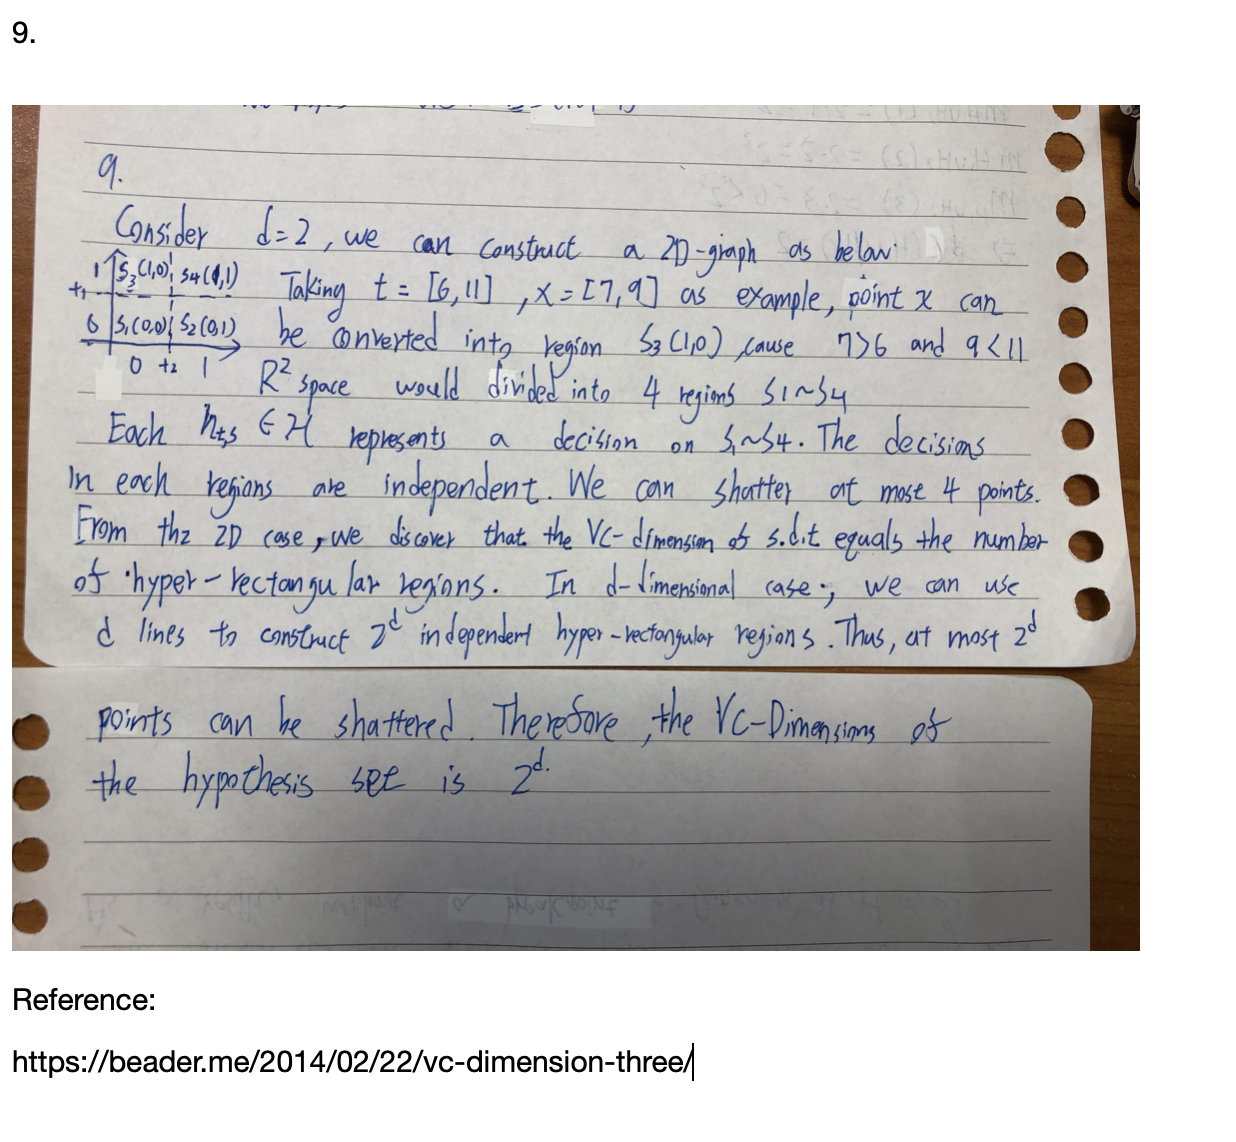 9.
9.
Consider d=2, we can construct a 2D-graph as below
1 S3(1,0) S4(1,1) Taking t = [6,11], x = [7,9] as example, point x can
t1
0 S1(0,0) S2(0,1) be converted into region S3(1,0), cause 7>6 and 9<11
0 t2 1 R² space would divided into 4 regions S1~S4
Each ht,s ∈ H represents a decision on S1~S4. The decisions
In each regions are independent. We can shatter at most 4 points.
From the 2D case, we discover that the VC-dimension of s.d.t equals the number
of hyper-rectangular regions. In d-dimensional case, we can use
d lines to construct 2^d independent hyper-rectangular regions. Thus, at most 2^d
points can be shattered. Therefore, the VC-Dimensions of
the hypothesis set is 2^d.
Reference:
https://beader.me/2014/02/22/vc-dimension-three/